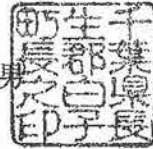 千葉県長
生郡白子
町長之印